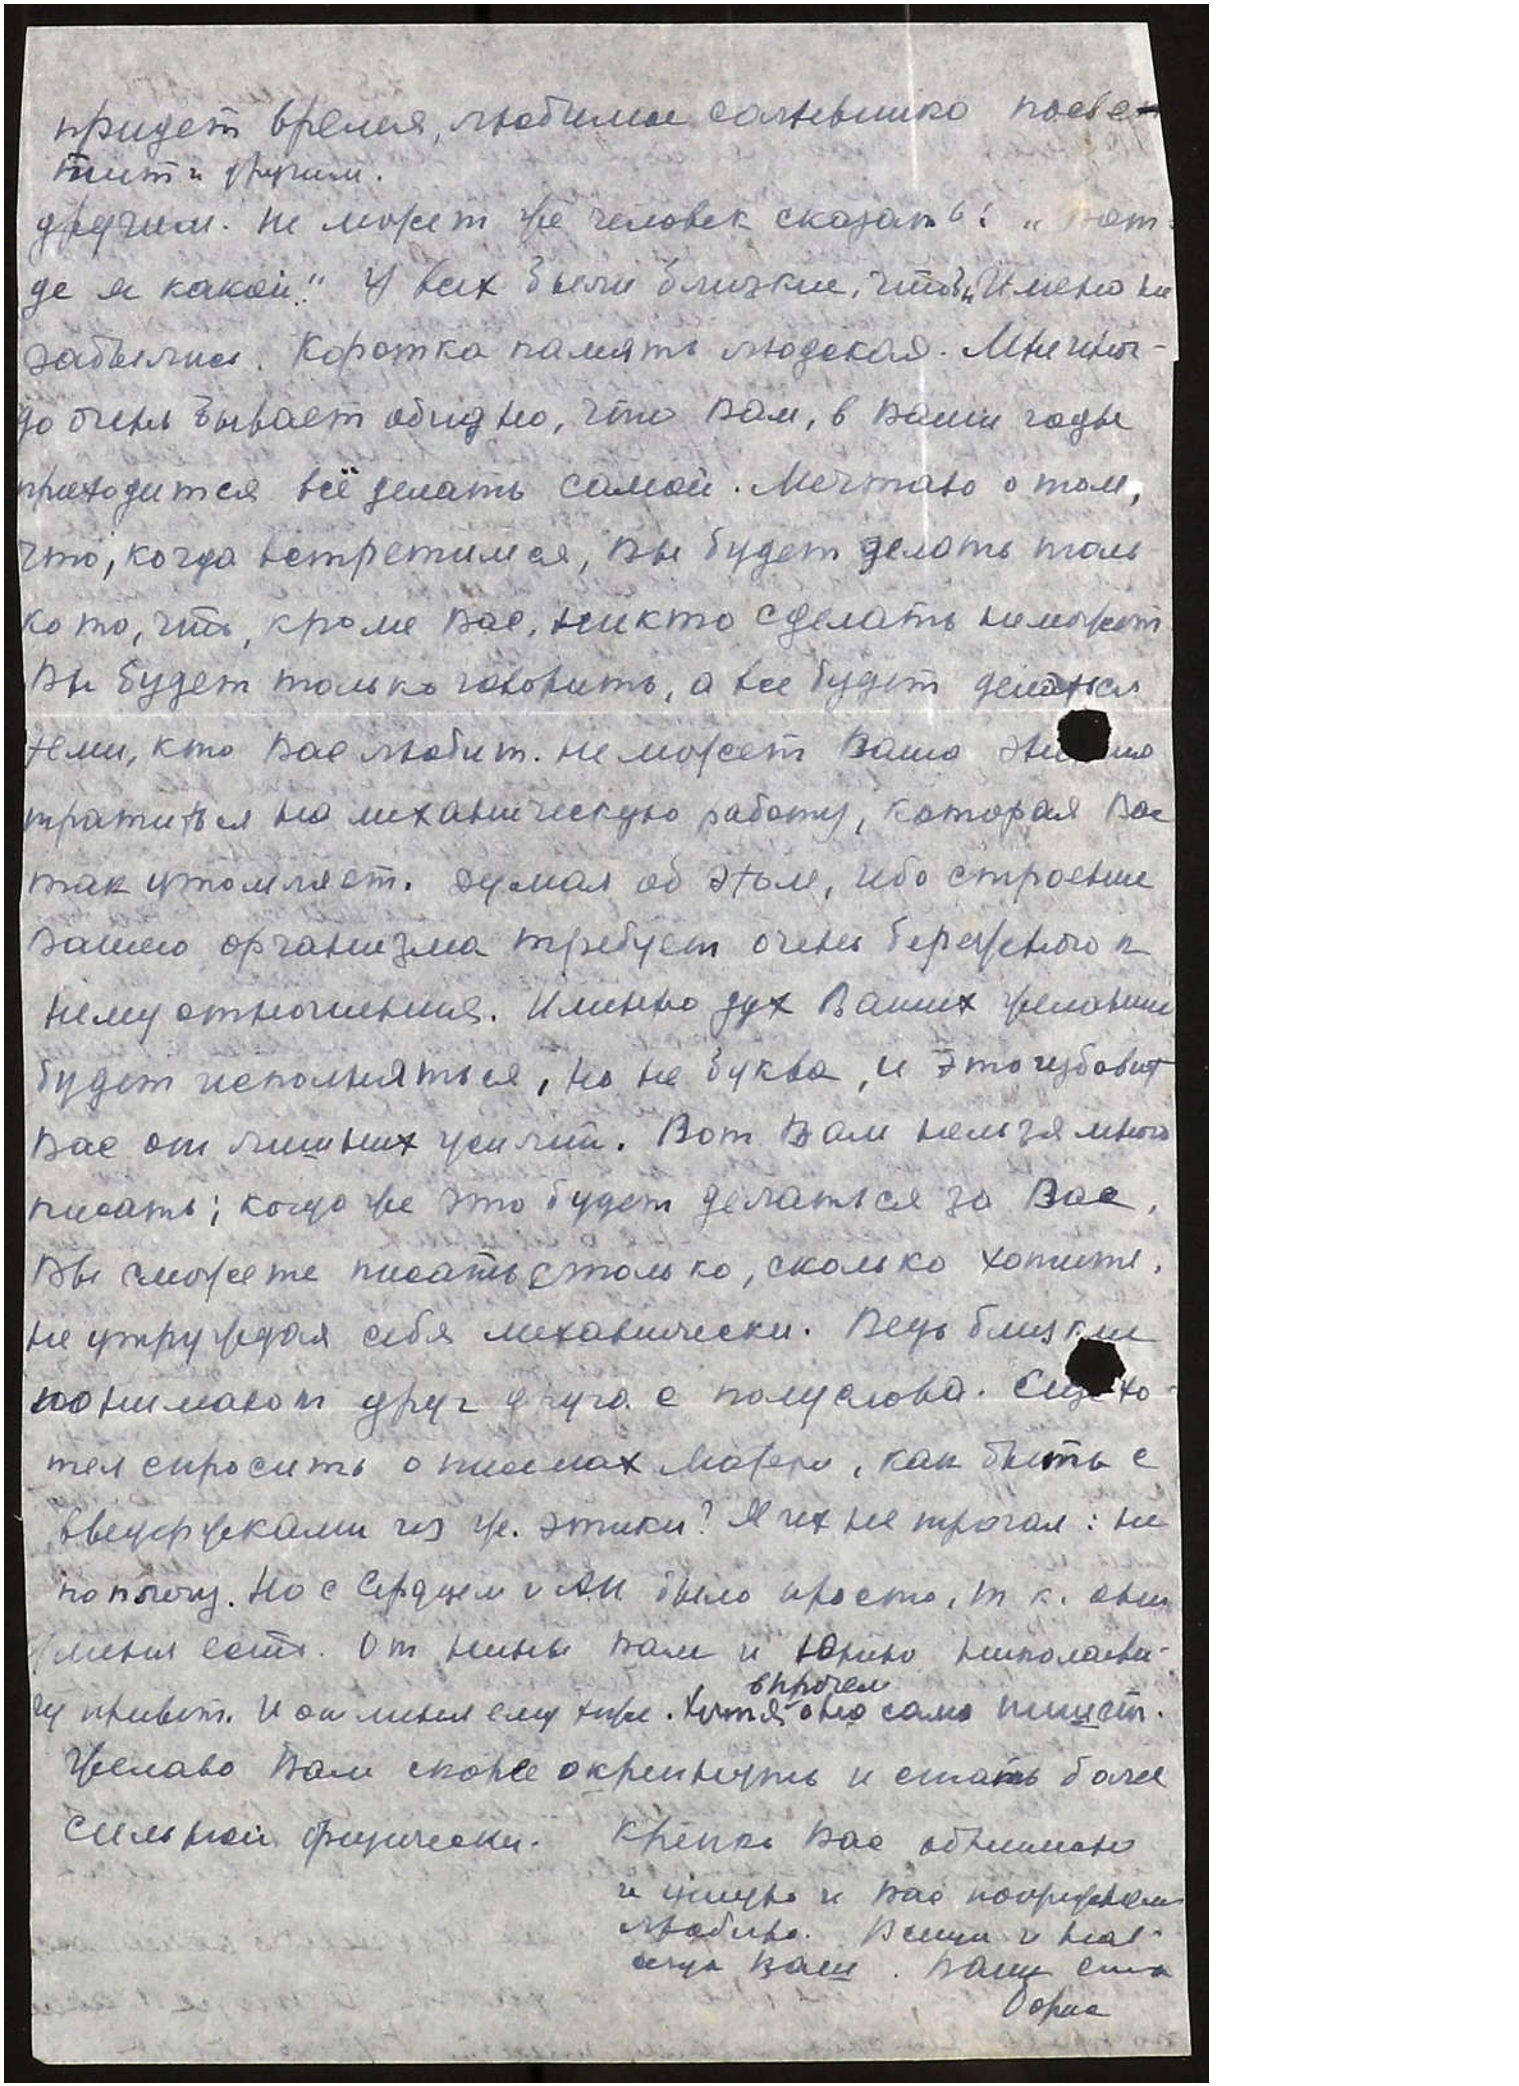 придет время, любимое солнышко посве-
тит и другим.
другим. Не может же человек сказать: „Вот-
де я какой." У всех были близкие, чтоб Имена не
забылись. Коротка память людская. Мне иног-
да очень бывает обидно, что Вам, в Ваши годы
приходится всё делать самой. Мечтаю о том,
что, когда встретимся, Вы будет делать толь
ко то, что, кроме Вас, никто сделать не может
Вы будет только говорить, а все будет делаться
теми, кто Вас любит. Не может Ваша
тратиться на механическую работу, которая Вас
так утомляет. Думал об этом, ибо строение
Вашего организма требует очень бережного к
нему отношения. Именно дух Ваших желаний
будет исполняться, но не буква, и это избавит
Вас от лишних усилий. Вот Вам нельзя много
писать; когда же это будет делаться за Вас,
Вы сможете писать столько, сколько хотите,
не утруждая себя механически. Ведь близкие
понимают друг друга с полуслова. Еще хо-
тел спросить о письмах Матери, как быть с
выдержками из ж. этики? Я их не трогал: не
по плечу. Но с Сердцем и АЙ было просто, т к. они
у меня есть. От Нины Вам и Юрию Николаеви-
чу привет. И от меня ему тоже. Хотя она сама пишет.
впрочем
Желаю Вам скорее окрепнуть и стать более
сильной физически. Крепко Вас обнимаю
и целую и Вас по-прежнему
люблю. Всегда и
Ваш. Ваш
Борис